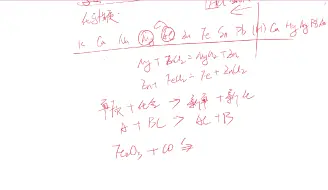 K Ca Na Mg Al Zn Fe Sn Pb (H) Cu Hg Ag Pt Au
Mg + ZnCl₂ = MgCl₂ + Zn
Zn + FeCl₂ = Fe + ZnCl₂
单质 + 化合 → 新单 + 新化
A + BC → AC + B
Fe₂O₃ + CO